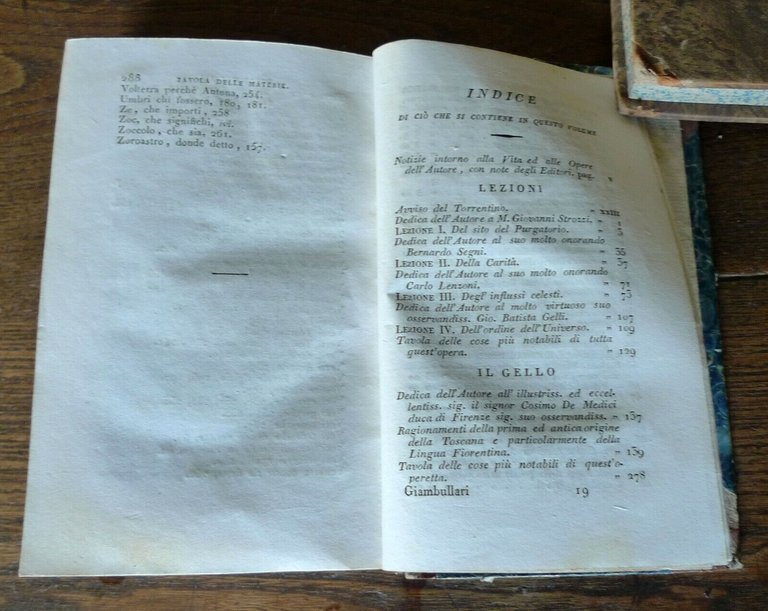 288 TAVOLA DELLE MATERIE.
Volterra perchè Antona, 254.
Umbri chi fossero, 180, 181.
Ze, che importi, 258
Zoc, che significhi, ivi.
Zoccolo, che sia, 261.
Zoroastro, donde detto, 157.
INDICE
DI CIÒ CHE SI CONTIENE IN QUESTO VOLUME
Notizie intorno alla Vita ed alle Opere
dell'Autore, con note degli Editori, pag. v
LEZIONI
Avviso del Torrentino. " XXIII
Dedica dell'Autore a M. Giovanni Strozzi. " 1
LEZIONE I. Del sito del Purgatorio. " 5
Dedica dell'Autore al suo molto onorando
Bernardo Segni. " 35
LEZIONE II. Della Carità. " 37
Dedica dell'Autore al suo molto onorando
Carlo Lenzoni. " 71
LEZIONE III. Degl' influssi celesti. " 75
Dedica dell'Autore al molto virtuoso suo
osservandiss. Gio. Batista Gelli. " 107
LEZIONE IV. Dell'ordine dell'Universo. " 109
Tavola delle cose più notabili di tutta
quest'opera. " 129
IL GELLO
Dedica dell'Autore all' illustriss. ed eccel-
lentiss. sig. il signor Cosimo De Medici
duca di Firenze sig. suo osservandiss. " 137
Ragionamenti della prima ed antica origine
della Toscana e particolarmente della
Lingua Fiorentina. " 139
Tavola delle cose più notabili di quest'o-
peretta. " 278
Giambullari 19